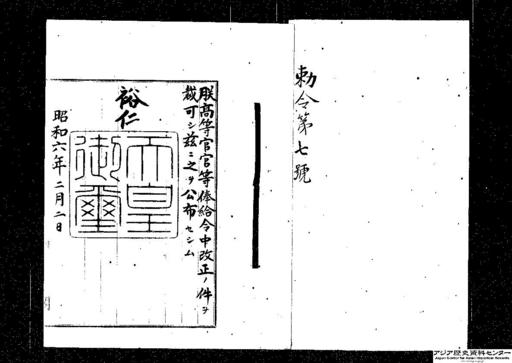 勅令第七號
朕高等官官等俸給令中改正ノ件ヲ
裁可シ茲ニ之ヲ公布セシム
裕仁
天皇
御璽
昭和六年二月二日
アジア歴史資料センター
Japan Center for Asian Historical Records